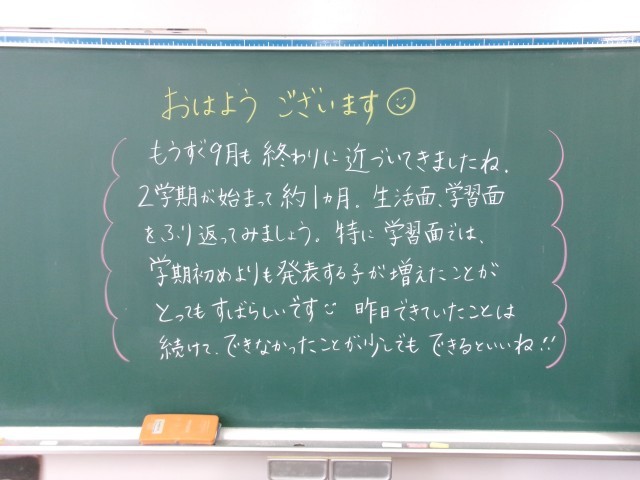 おはよう ございます
もうすぐ9月も 終わりに 近づいてきましたね.
2学期が始まって 約1ヵ月. 生活面、学習面
をふり返ってみましょう。特に 学習面では、
学期初めよりも 発表する子が 増えたことが
とっても すばらしいです 昨日できていたことは
続けて、できなかったことが少しでも できるといいね!!